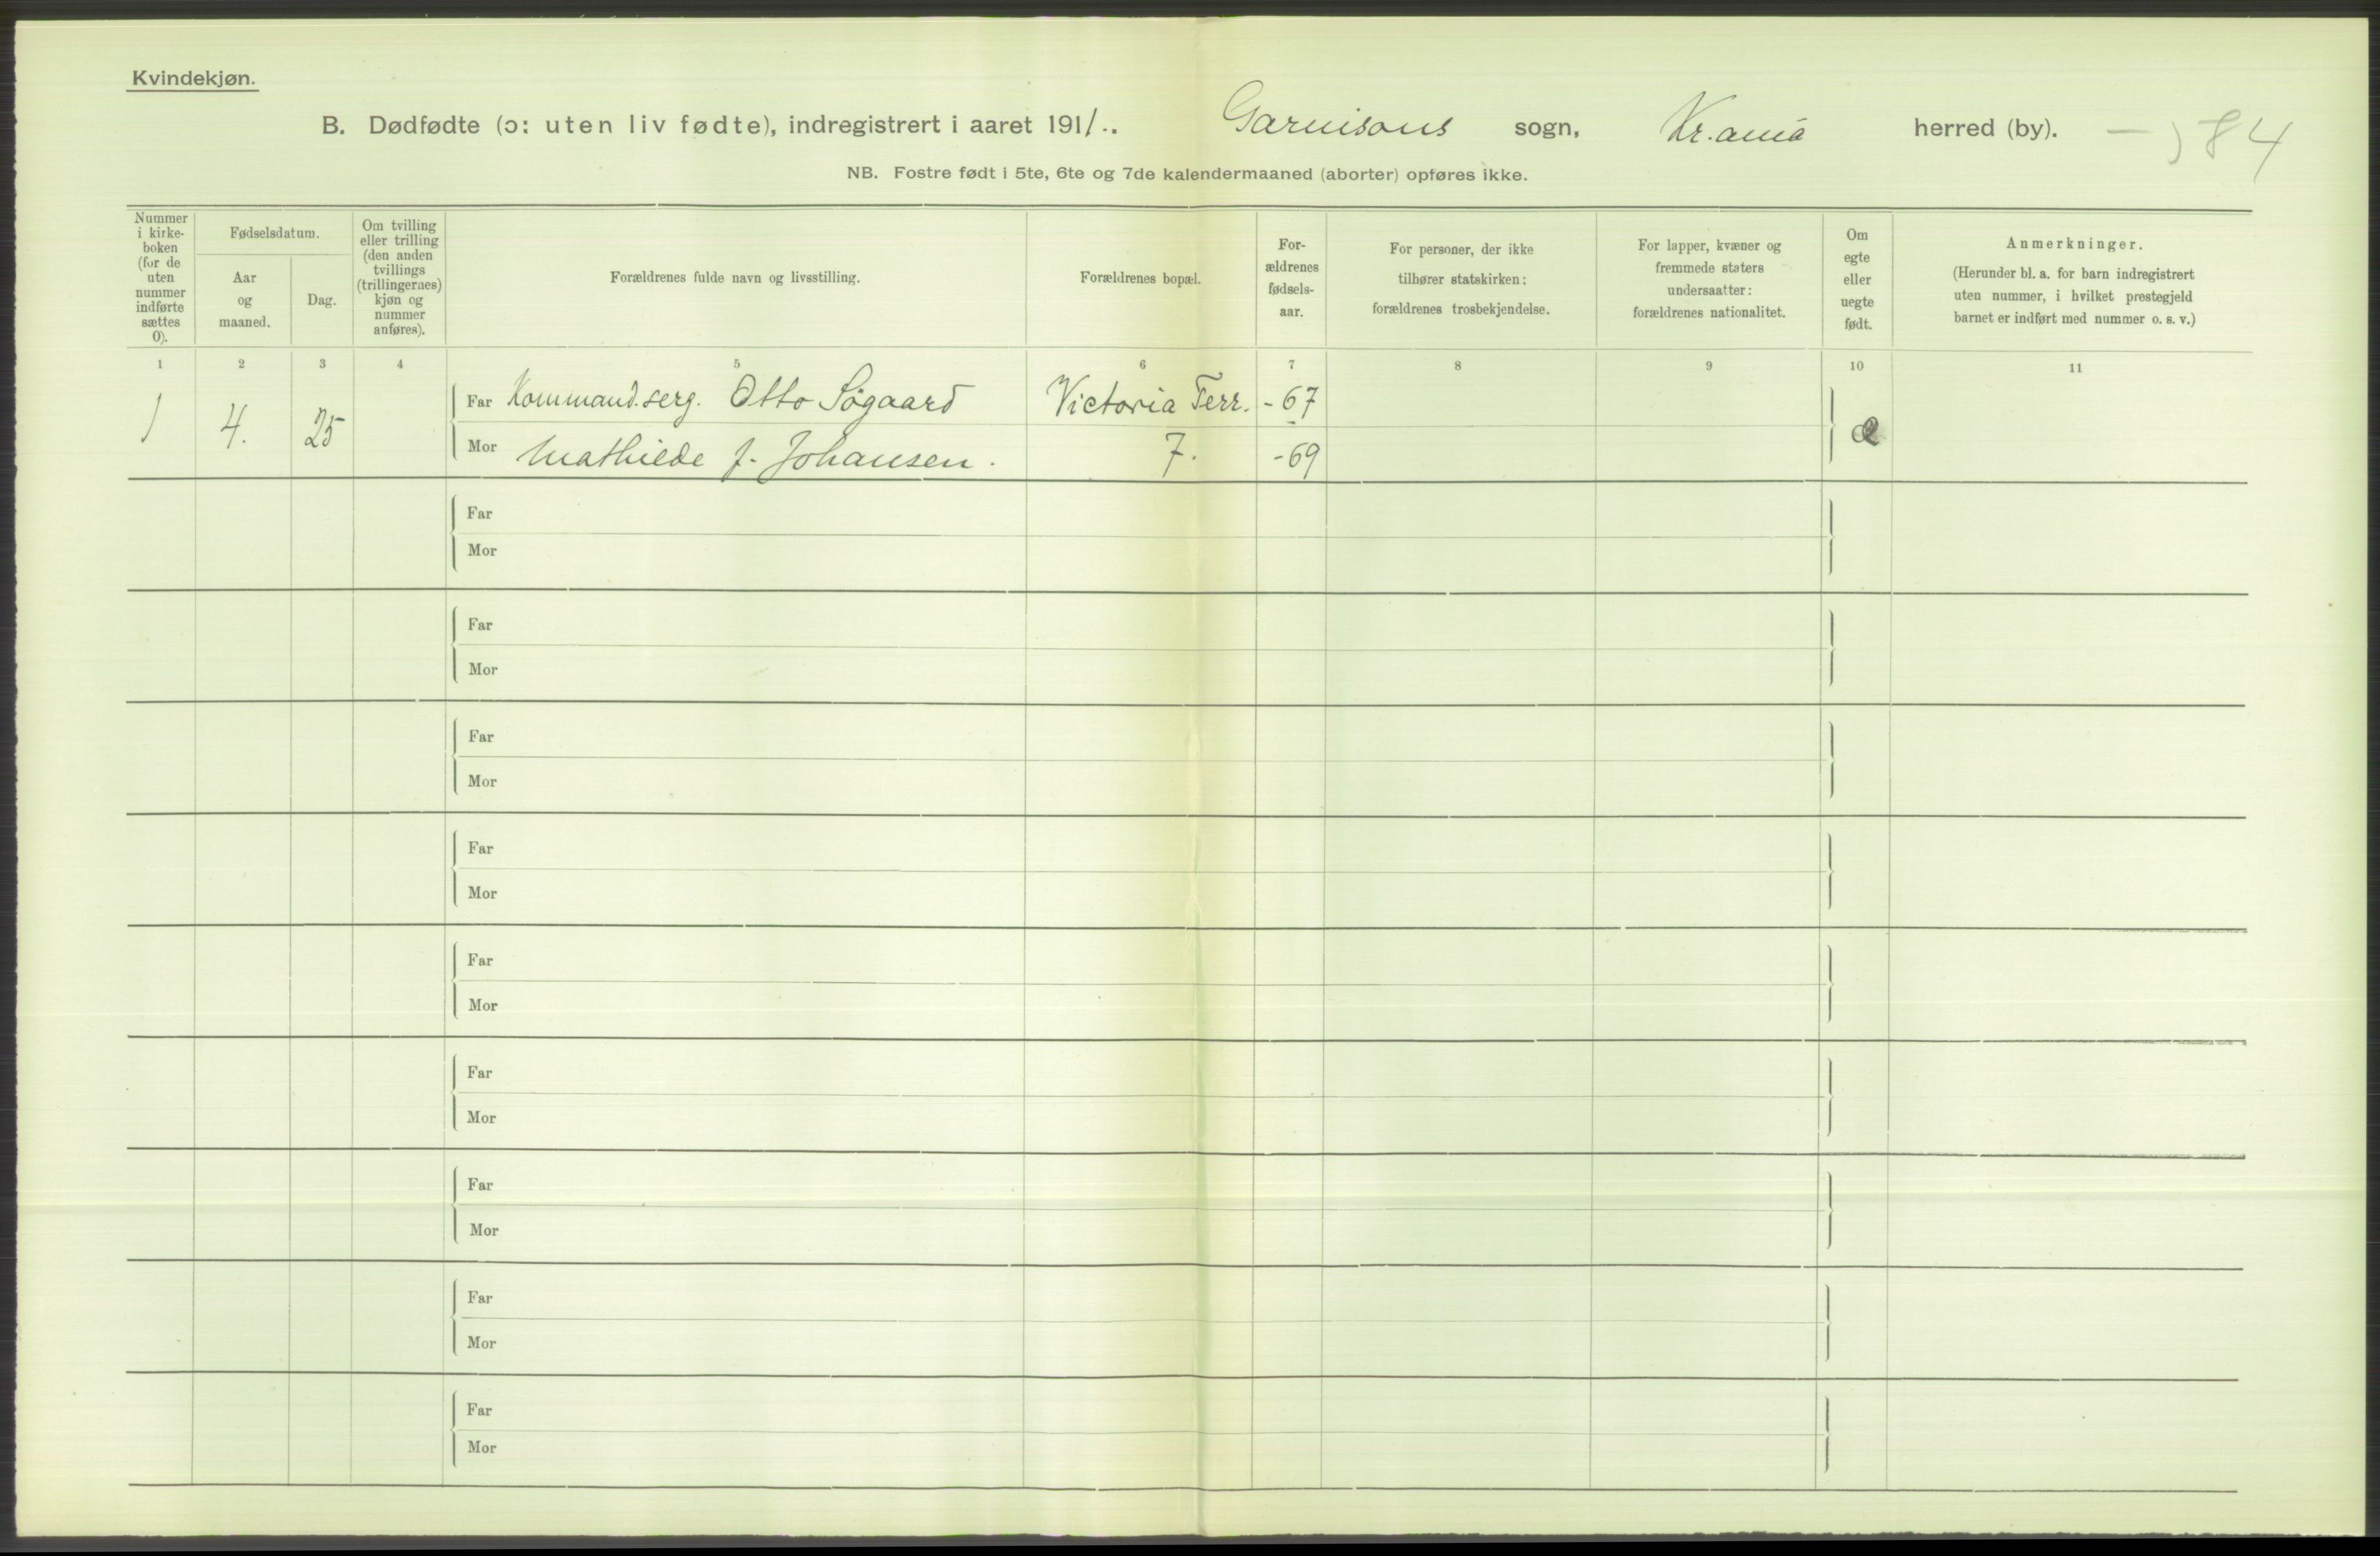 Kvindekjøn.
B. Dødfødte (ɔ: uten liv fødte), indregistrert i aaret 1911. Garnisons sogn, Kr.ania herred (by). 84
NB. Fostre født i 5te, 6te og 7de kalendermaaned (aborter) opføres ikke.
Nummer
i kirke-
boken
(for de
uten
nummer
indførte
sættes
0).
Fødselsdatum.
Aar
og
maaned.
Dag.
Om tvilling
eller trilling
(den anden
tvillings
(trillingernes)
kjøn og
nummer
anføres).
Forældrenes fulde navn og livsstilling.
Forældrenes bopæl.
For-
ældrenes
fødsels-
aar.
For personer, der ikke
tilhører statskirken:
forældrenes trosbekjendelse.
For lapper, kvæner og
fremmede staters
undersaatter:
forældrenes nationalitet.
Om
egte
eller
uegte
født.
Anmerkninger.
(Herunder bl. a. for barn indregistrert
uten nummer, i hvilket prestegjeld
barnet er indført med nummer o. s. v.)
1 2 3 4 5 6 7 8 9 10 11
1 4. 25 Far Kommand.serg. Otto Søgaard Victoria Terr. -67 e
Mor Mathilde f. Johansen. 7. -69
Far
Mor
Far
Mor
Far
Mor
Far
Mor
Far
Mor
Far
Mor
Far
Mor
Far
Mor
Far
Mor